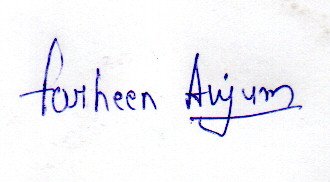 Farheen Anjum